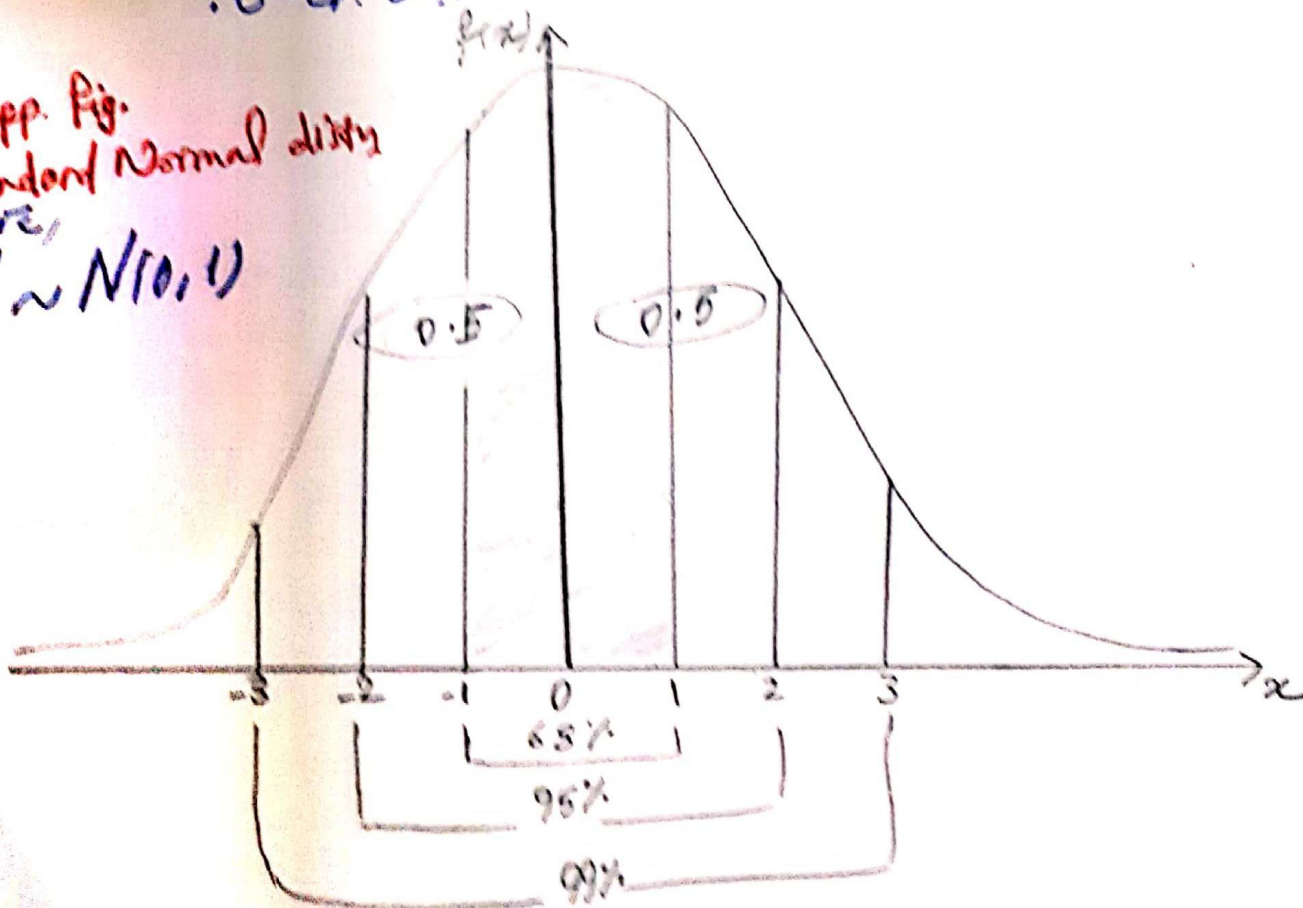 f(x)
pp. fig.
Normal distn
~ N(0,1)
0.5 0.5
-3 -2 -1 0 1 2 3 x
68%
95%
99%